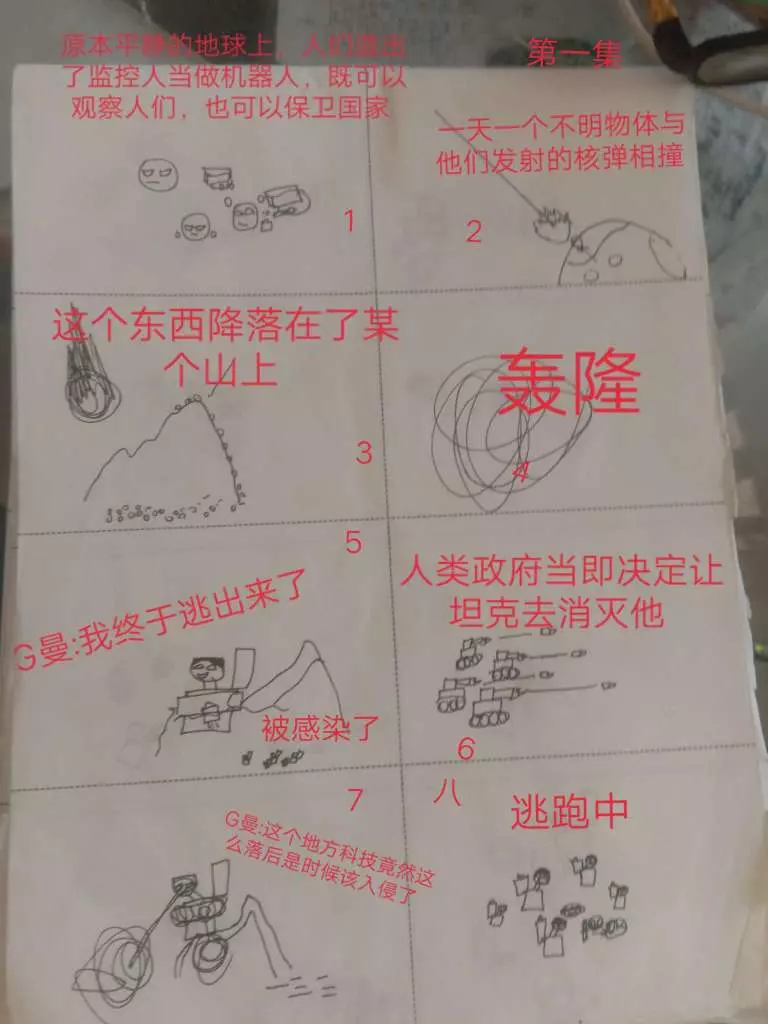 原本平静的地球上，人们造出
了监控人当做机器人，既可以
观察人们，也可以保卫国家
1
第一集
一天一个不明物体与
他们发射的核弹相撞
2
这个东西降落在了某
个山上
3
轰隆
4
5
G曼:我终于逃出来了
被感染了
人类政府当即决定让
坦克去消灭他
6
7
G曼:这个地方科技竟然这
么落后是时候该入侵了
八
逃跑中